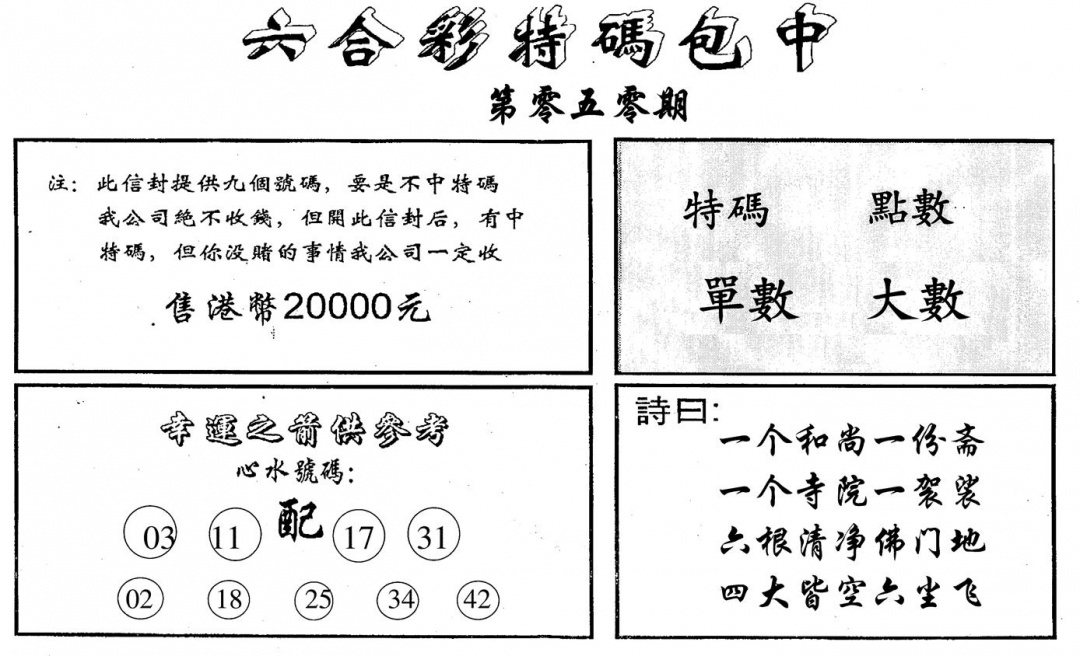 六合彩特碼包中
第零五零期
注：此信封提供九個號碼，要是不中特碼
我公司絕不收錢，但開此信封后，有中
特碼，但你没賭的事情我公司一定收
售港幣20000元
特碼 點數
單數 大數
幸運之箭供參考
心水號碼：
配
03 11 17 31
02 18 25 34 42
詩曰：
一个和尚一份斋
一个寺院一袈裟
六根清净佛门地
四大皆空六尘飞